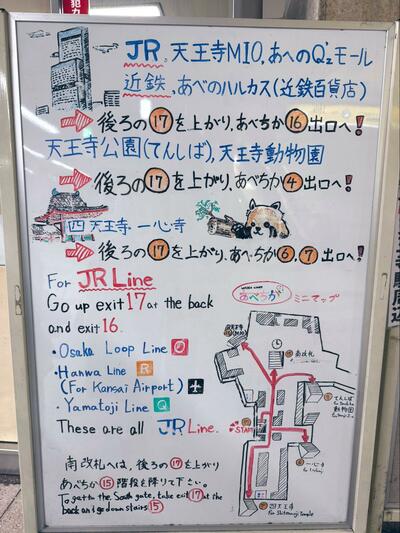 JR, 天王寺MIO, あべのQ'sモール
近鉄, あべのハルカス(近鉄百貨店)
後ろの⑰を上がり, あべちか⑯出口へ!
天王寺公園(てんしば), 天王寺動物園
後ろの⑰を上がり, あべちか④出口へ!
四天王寺・一心寺
後ろの⑰を上がり, あべちか⑥, ⑦出口へ!
For JR Line
Go up exit 17 at the back
and exit 16.
・Osaka Loop Line O
・Hanwa Line R
(For Kansai Airport)
・Yamatoji Line Q
These are all JR Line.
南改札へは, 後ろの⑰を上がり
あべちか⑮階段を降りて下さい。
To get to the South gate, take exit ⑰ at the
back and go down stairs ⑮
あべちか ミニマップ
天王寺
MIO
南改札
START
てんしば
動物園
一心寺
四天王寺
For Shitennoji Temple